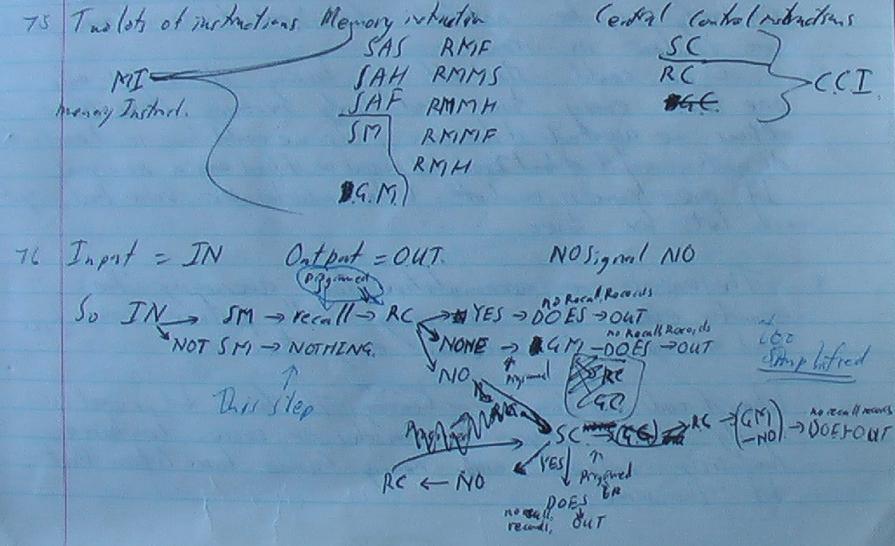 75 Two lots of instructions. Memory intruction Central Control instructions
SAS RMF SC
MI SAH RMMS RC C.C.I.
memory Instruct. SAF RMMH
SM RMMF
RMH
G.M.
76 Input = IN Output = OUT. NO Signal NO
So IN → SM → recall → RC → YES → DOES → OUT
no Recall Records
NOT SM → NOTHING. NONE → GM - DOES → OUT
no Recall Records
This step NO
RC
GC
SC RC → (GM - NO) → DOES → OUT
no recall records
RC ← NO YES
DOES OR
no recall records, OUT